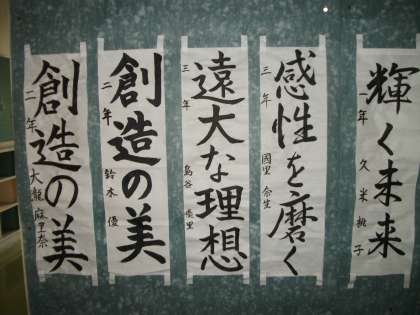 輝く未来
一年 久米桃子
感性を磨く
三年 國里
遠大な理想
三年 島谷
創造の美
二年 鈴木 優
創造の美
二年 大瀧 麻里奈